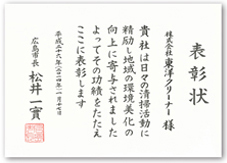 表彰状
株式会社東洋クリーナー 様
貴社は日々の清掃活動に
精励し地域の環境美化の
向上に寄与されました
よってその功績をたたえ
ここに表彰します
広島市長 松井一實